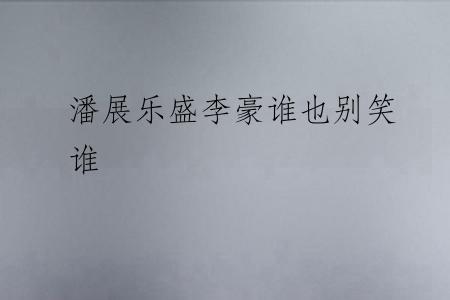 潘展乐盛李豪谁也别笑
谁